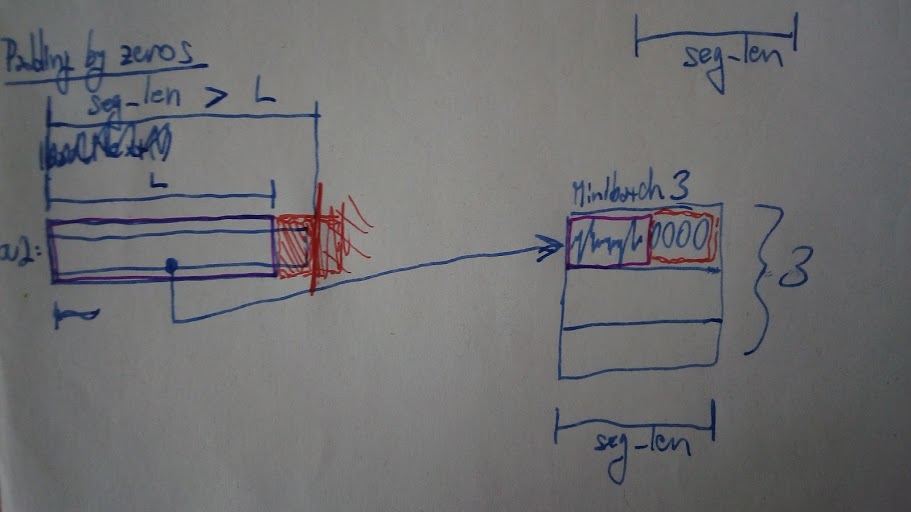 Padding by zeros
seg-len
seg-len > L
L
Minibatch 3
0000
3
seg-len